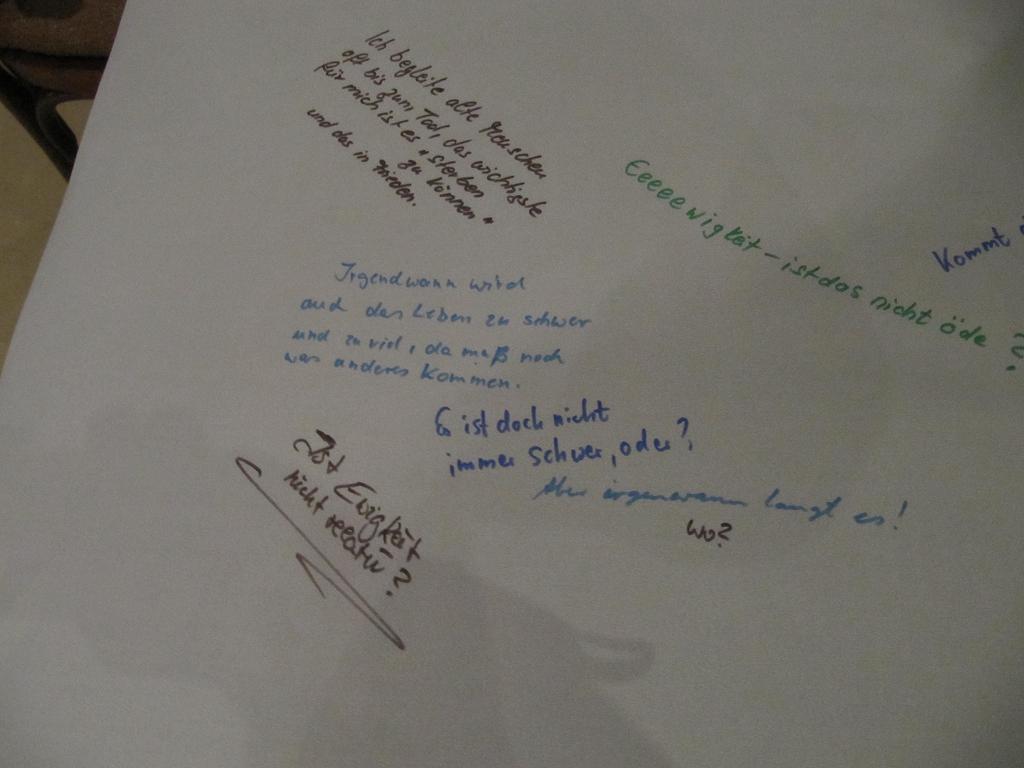 Ich begleite alte Menschen
oft bis zum Tod, das wichtigste
für mich ist es "sterben
zu können"
und das in Frieden.
Eeeeewigkeit - ist das nicht öde?
Kommt
Irgendwann wird
auch das Leben zu schwer
und zu viel, da muß noch
was anderes kommen.
Es ist doch nicht
immer schwer, oder?
Aber irgenwann langt es!
wo?
Ist Ewigkeit
nicht relativ?